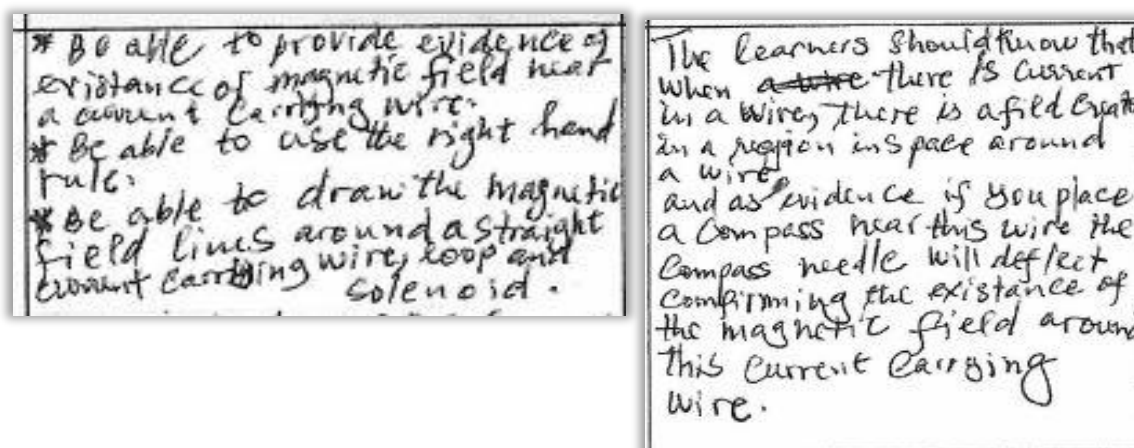 * Be able to provide evidence of
existance of magnetic field near
a current carrying wire.
* Be able to use the right hand
rule.
* Be able to draw the magnetic
field lines around a straight
current carrying wire, loop and
solenoid.
The learners should know that
when a wire there is current
in a wire, there is a field create
in a region in space around
a wire
and as evidence if you place
a compass near this wire the
compass needle will deflect
confirming the existance of
the magnetic field around
this current carrying
wire.